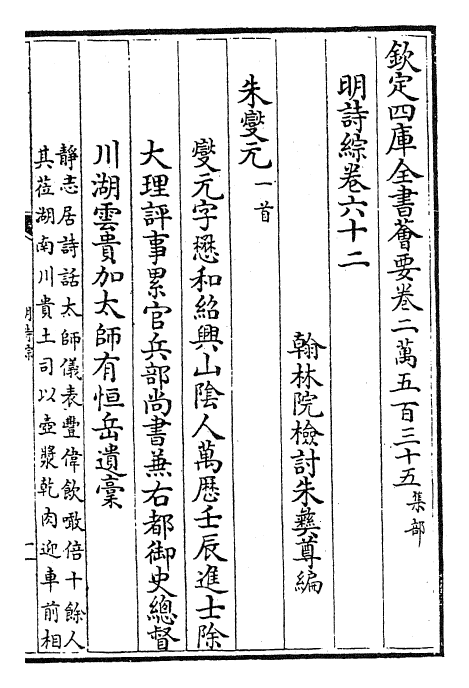 欽定四庫全書薈要卷二萬五百三十五集部
明詩綜卷六十二
翰林院檢討朱彞尊編
朱燮元一首
燮元字懋和紹興山陰人萬厯壬辰進士除
大理評事累官兵部尚書兼右都御史總督
川湖雲貴加太師有恒岳遺稾
靜志居詩話太師儀表豐偉飲噉倍十餘人
其莅湖南川貴土司以壺漿乾肉迎車前相